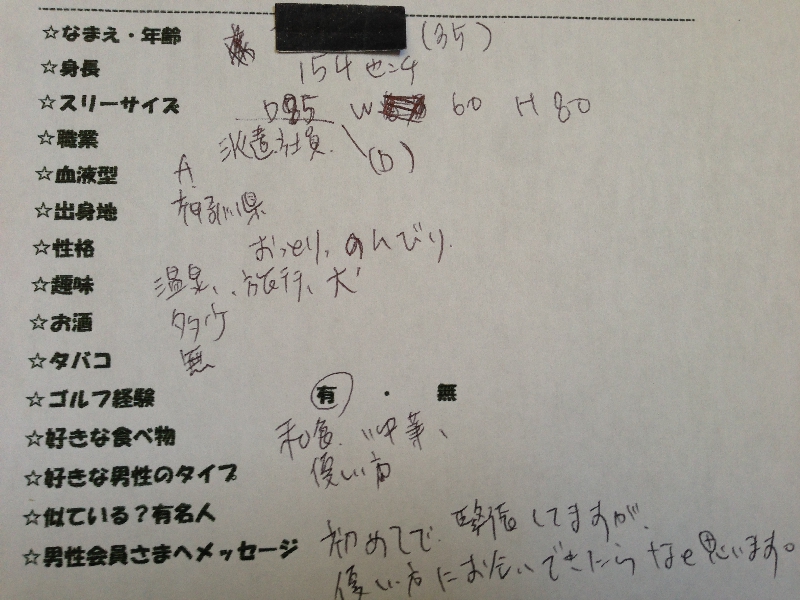 ☆なまえ・年齢 (35)
☆身長 154センチ
☆スリーサイズ B85 W 60 H 80
☆職業 派遣社員. (D)
☆血液型 A
☆出身地 神奈川県
☆性格 おっとり、のんびり.
☆趣味 温泉、旅行、犬
☆お酒 少々
☆タバコ 無
☆ゴルフ経験 有 ・ 無
☆好きな食べ物 和食、中華、
☆好きな男性のタイプ 優しい方
☆似ている?有名人
☆男性会員さまへメッセージ 初めてで、緊張してますが、
優しい方にお会いできたらなと思います。